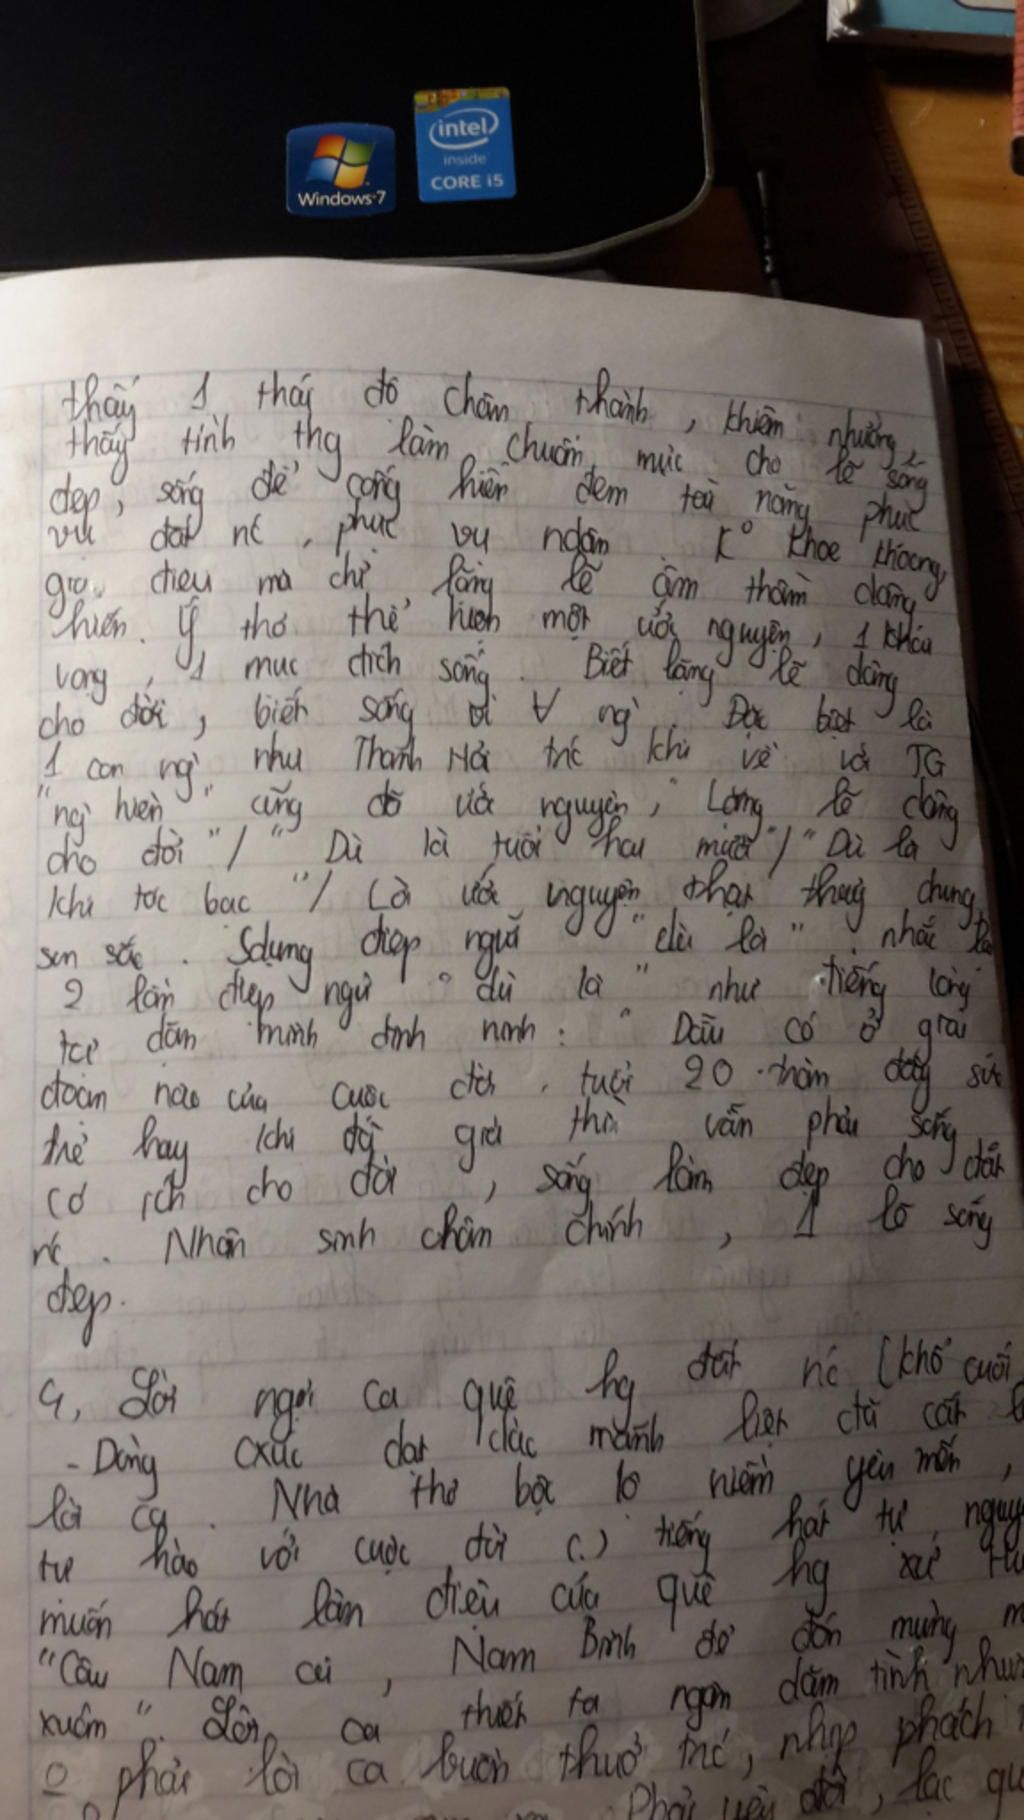 intel
inside
CORE i5
Windows 7
thấy 1 thái độ chân thành, khiêm nhường,
thấy tính thg làm chuẩn mực cho lẽ sống
đẹp, sống để cống hiến đem tài năng phục
vụ đất nc, phục vụ ndân K° khoe khoang,
giai điệu mà chỉ lặng lẽ âm thầm dâng
hiến. Ý thơ thể hiện một ước nguyện, 1 khát
vọng, 1 mục đích sống. Biết lặng lẽ dâng
cho đời, biết sống vì ∀ ng`. Đặc biệt là
1 con ng` như Thanh Hải trc khi về với TG
"ng` hiền" cũng đã ước nguyện, "Lặng lẽ dâng
cho đời"/"Dù là tuổi hai mươi"/"Dù là
khi tóc bạc"/ Là ước nguyện thật thuỷ chung,
son sắc. Sdụng điệp ngữ "dù là". nhắc lại
2 lần điệp ngữ "dù là" như tiếng lòng
tự dặn mình đinh ninh: "Dẫu có ở giai
đoạn nào của cuộc đời, tuổi 20 đầy sức
trẻ hay khi đã già thì vẫn phải sống
có ích cho đời, sống làm đẹp cho đất
nc. Nhân sinh chân chính, 1 lẽ sống
đẹp.
4, Lời ngợi ca quê hg đất nc (khổ cuối
- Dòng cxúc dạt dào mãnh liệt đã cất
lời ca. Nhà thơ bộc lộ niềm yêu mến,
tự hào với cuộc đời (.) tiếng hát tự nguy
muốn hát làn điệu của quê hg xứ
"Câu Nam ai, Nam Bình để đón mừng
xuân". Lời ca thiết tha ngân dăm tình như
0 phải lời ca buồn thuở trc, nhịp phách
Phải yêu đời, lạc qu